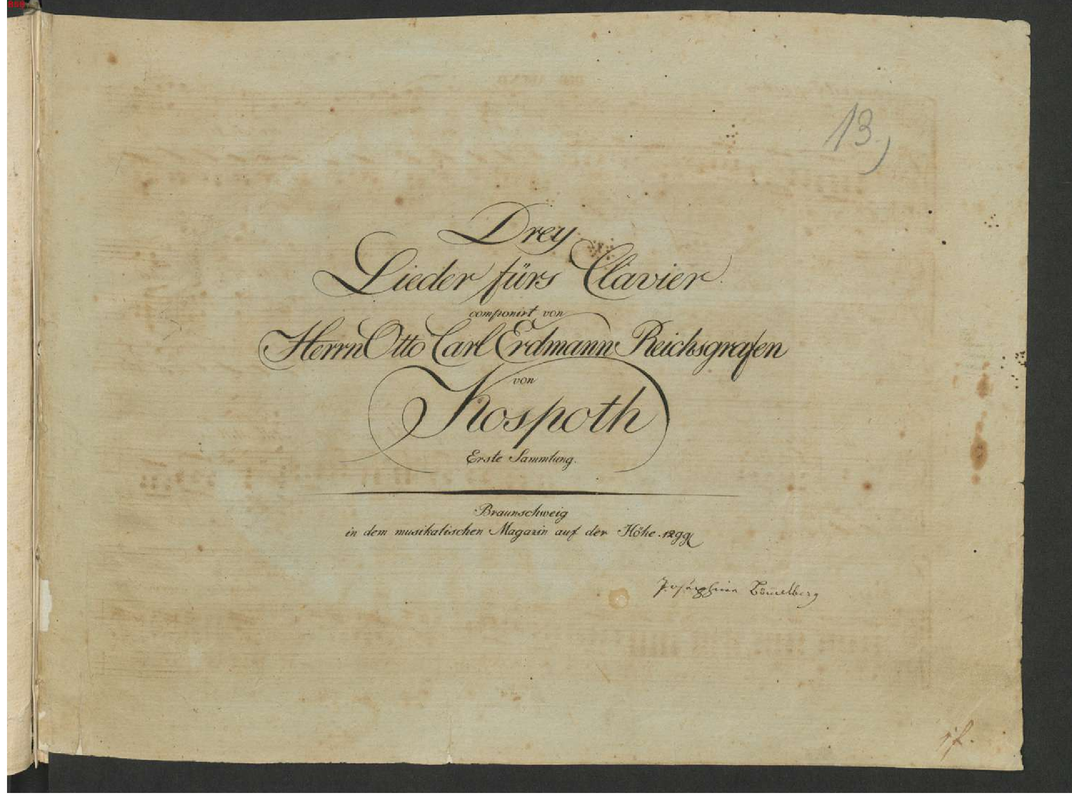 13,
Drey
Lieder fürs Clavier
componirt von
Herrn Otto Carl Erdmann Reichsgrafen
von
Kospoth
Erste Sammlung.
Braunschweig
in dem musikalischen Magazin auf der Höhe. 12 ggl
Josephina